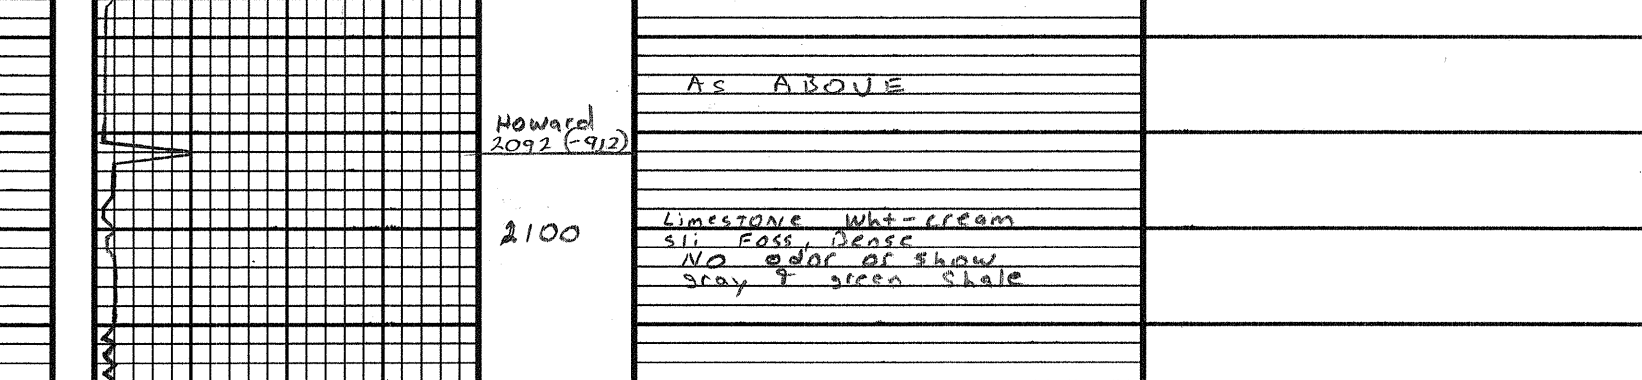 As ABOVE
Howard
2092 (-912)
2100
Limestone Wht-cream
sli Foss, Dense
No odor or show
gray & green Shale